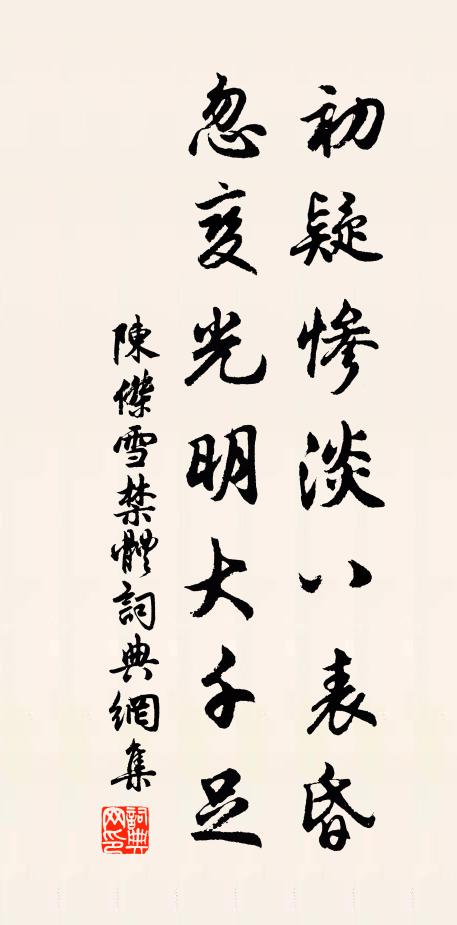 初疑惨淡八表昏
忽变光明大千足
陳傑雪禁體詞典網集
詞典网印